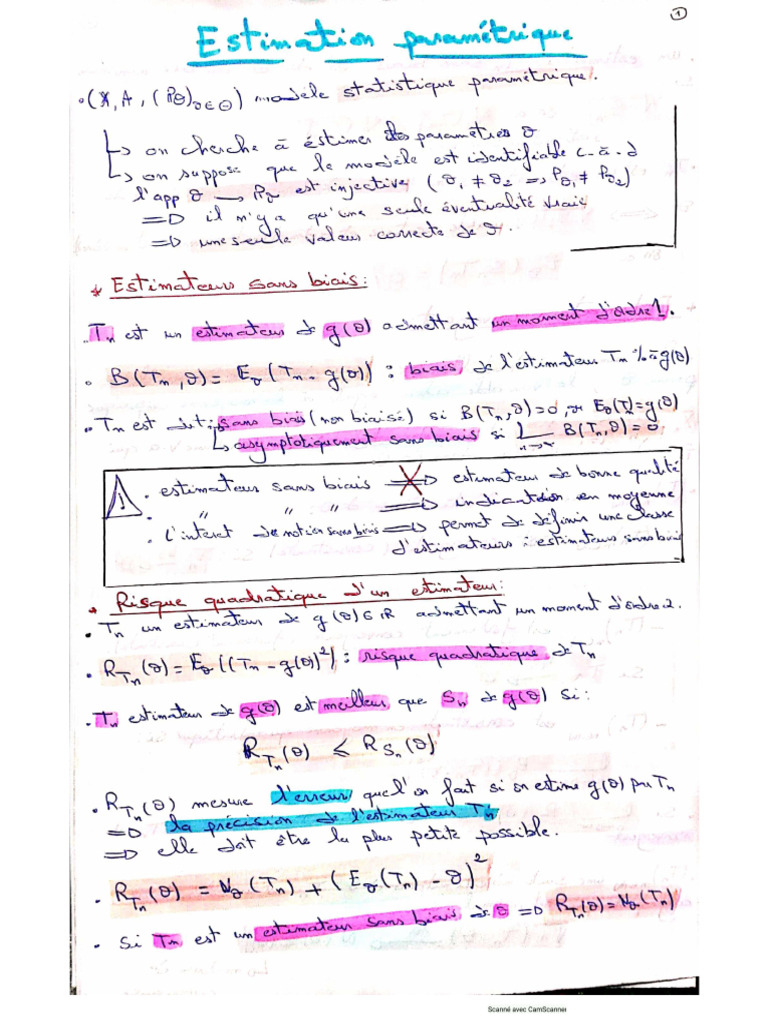 1
Estimation paramétrique
• (X, A, (Pθ)θ∈Θ) modèle statistique paramétrique.
↳ on cherche à éstimer des paramétres θ
↳ on suppose que le modèle est identifiable c-à-d
l'app θ → Pθ est injective (θ1 ≠ θ2 => Pθ1 ≠ Pθ2)
=> il n'y a qu'une seule éventualité vraie
=> une seule valeur correcte de θ.
* Estimateurs sans biais:
• Tn est un estimateur de g(θ) admettant un moment d'ordre 1.
• B(Tn, θ) = Eθ(Tn - g(θ)) : biais de l'estimateur Tn %à g(θ)
• Tn est dit: sans biais (non biaisé) si B(Tn, θ)=0, Eθ(T)=g(θ)
↳ asymptotiquement sans biais si L n→∞ B(Tn, θ) = 0
! • estimateurs sans biais ≠> estimateur de bonne qualité
• " " " => indication en moyenne
• L'interet de notion sans biais => permet de définir une classe
d'estimateurs : estimateurs sans biais
* Risque quadratique d'un estimateur:
• Tn un estimateur de g(θ)∈IR admettant un moment d'ordre 2.
• RTn(θ) = Eθ((Tn - g(θ))²) : risque quadratique de Tn
• Tn estimateur de g(θ) est meilleur que Sn de g(θ) si:
RTn(θ) ≤ RSn(θ)
• RTn(θ) mesure l'erreur que l'on fait si on estime g(θ) par Tn
=> la précision de l'estimateur Tn
=> elle doit être la plus petite possible.
• RTn(θ) = Vθ(Tn) + (Eθ(Tn) - θ)²
• Si Tn est un estimateur sans biais de θ => RTn(θ) = Vθ(Tn)
Scanné avec CamScanner